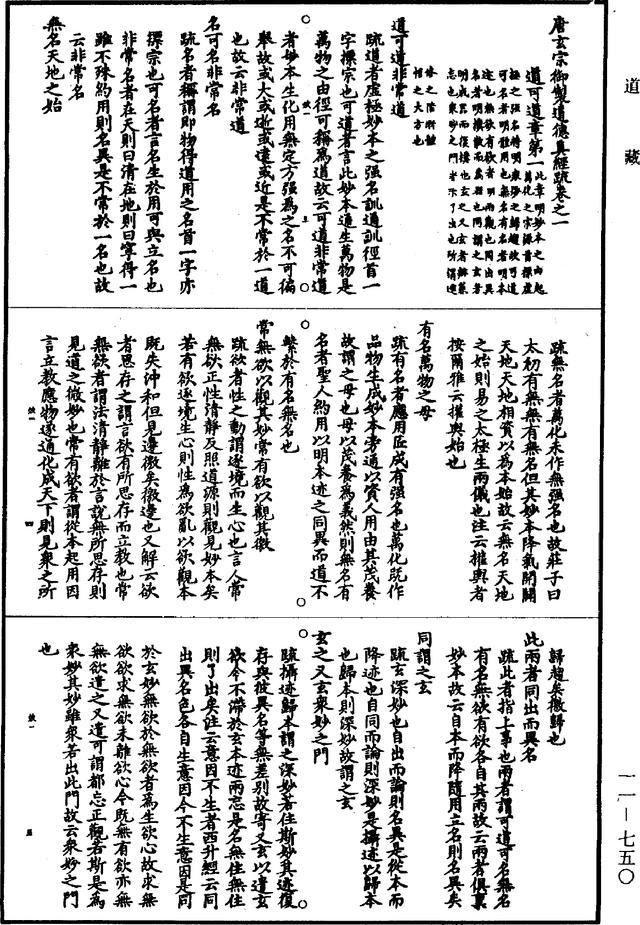 道藏
一一—七五〇
唐玄宗御製道德真經疏卷之一
道可道章第一
道可道非常道
疏道者虛極妙本之強名訓通訓徑首一
字摽宗也可道者言此妙本通生萬物是
萬物之由徑可稱為道故云可道非常道
者妙本生化用無定方強為之名不可徧
舉故或大或逝或遠或近是不常於一道
也故云非常道
名可名非常名
疏名者稱謂即物得道用之名首一字亦
摽宗也可名者言名生於用可與立名也
非常名者在天則曰清在地則曰寧得一
雖不殊約用則名異是不常於一名也故
云非常名
無名天地之始
疏無名者萬化未作無強名也故莊子曰
太初有無無有無名但其妙本降氣開闢
天地天地相資以為本始故云無名天地
之始則易之太極生兩儀也注云權輿者
按爾雅云權輿始也
有名萬物之母
疏有名者應用匠成有強名也萬化既作
品物生成妙本旁通以資人用由其茂養
故謂之母也母以茂養為義然則無名有
名者聖人約用以明本迹之同異而道不
繫於有名無名也
常無欲以觀其妙常有欲以觀其徼
疏欲者性之動謂逐境而生心也言人常
無欲正性清靜反照道源則觀見妙本矣
若有欲逐境生心則性為欲亂以欲觀本
既失沖和但見邊徼矣徼邊也又解云欲
者思存之謂言欲有所思存而立教也常
無欲者謂法清靜離於言說無所思存則
見道之微妙也常有欲者謂從本起用因
言立教應物遂通化成天下則見眾之所
歸趨矣徼歸也
此兩者同出而異名
疏此者指上事也兩者謂可道可名無名
有名無欲有欲各自其兩故云兩者俱稟
妙本故云自本而降隨用立名則名異矣
同謂之玄
疏玄深妙也自出而論則名異是從本而
降迹也自同而論則深妙是攝迹以歸本
也歸本則深妙故謂之玄
玄之又玄眾妙之門
疏攝迹歸本謂之深妙若住斯妙其迹復
存與彼異名等無差別故寄又玄以遣玄
欲令不滯於玄本迹兩忘是名無住無住
則了出矣注云意因不生者西升經云同
出異名色各自生意因今不生意因是同
於玄妙無欲於無欲者為生欲心故求無
欲欲求無欲未離欲心今既無有欲亦無
無欲遣之又遣可謂都忘正觀若斯是為
眾妙其妙雖眾若出此門故云眾妙之門
也